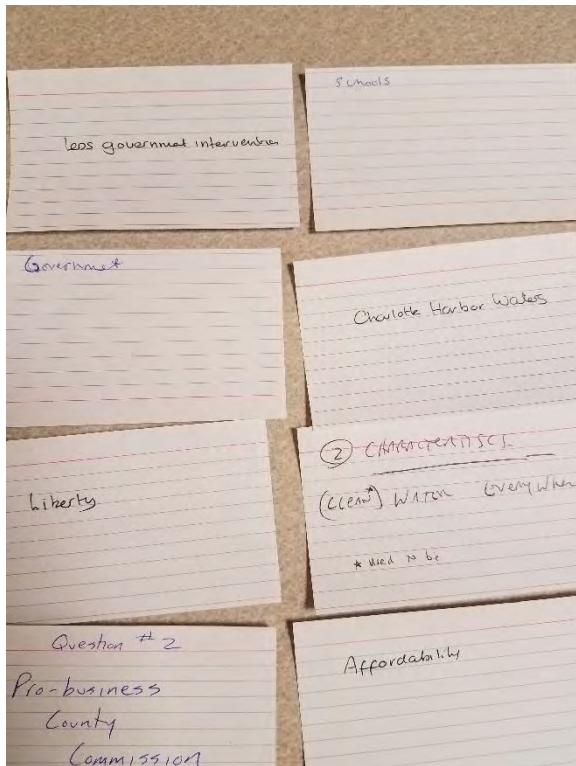 Less government intervention
Schools
Government
Charlotte Harbor Waters
Liberty
② CHARACTERISTICS
(CLEAN*) WATER EVERYWHERE
* used to be
Question # 2
Pro-business
County
Commission
Affordability